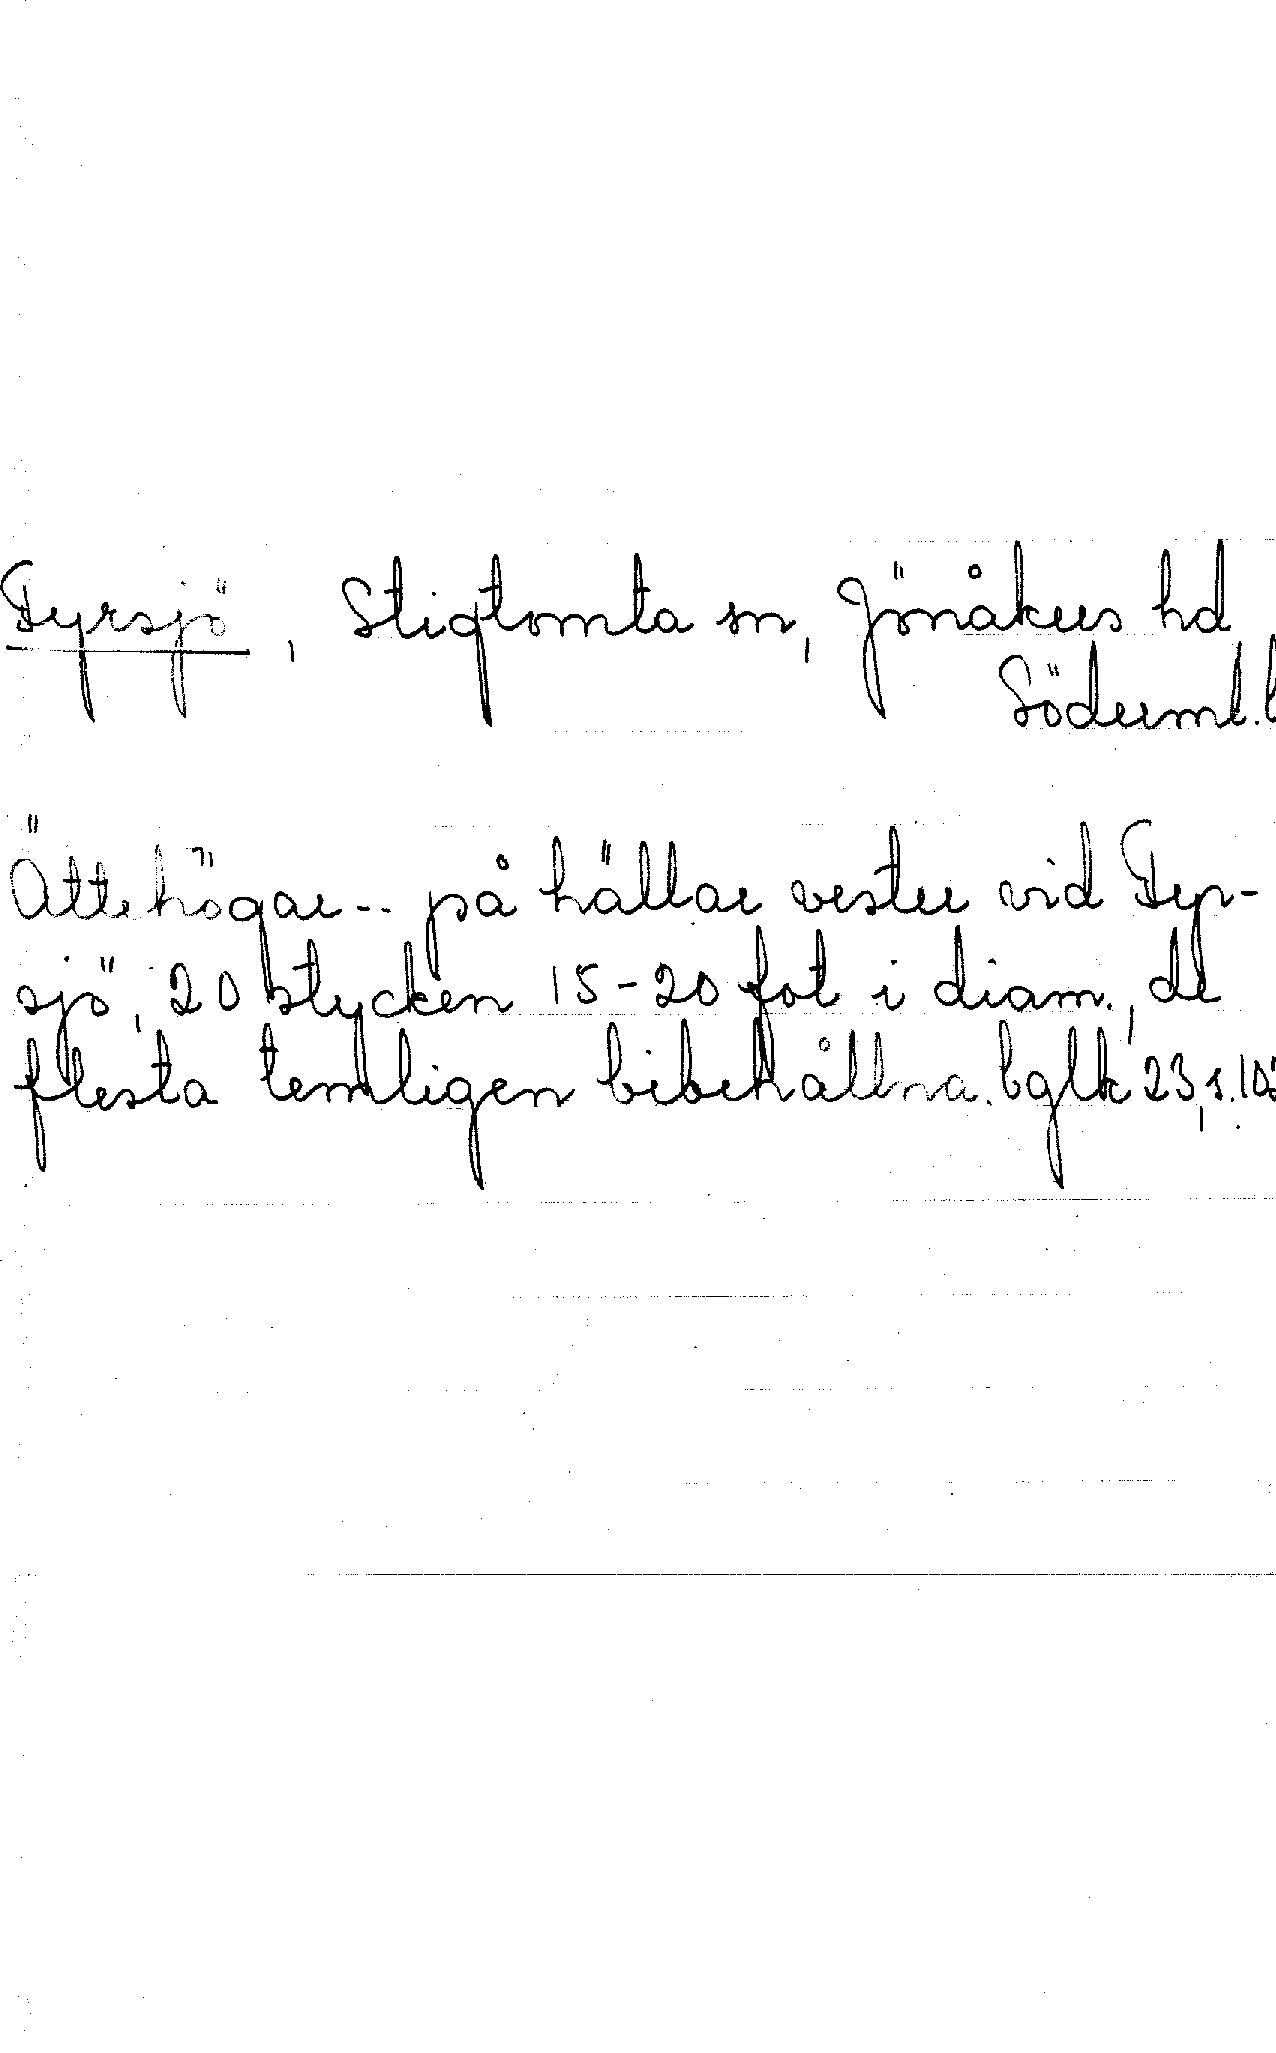 Fyrsjö, Stigtomta sn, Jönåkers hd
Söderml. l
Ättehögar -- på hällar vester vid Fyr-
sjö, 20 stycken 15-20 fot i diam., de
flesta temligen bibehållna. bglk 23, s. 105